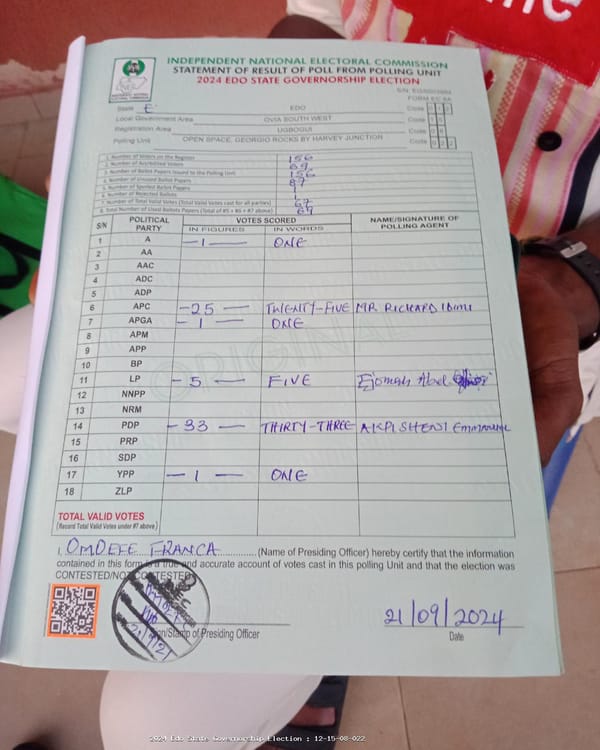 INDEPENDENT NATIONAL ELECTORAL COMMISSION
STATEMENT OF RESULT OF POLL FROM POLLING UNIT
2024 EDO STATE GOVERNORSHIP ELECTION
FORM EC 8A
State E EDO Code
Local Government Area OVIA SOUTH WEST Code
Registration Area UGBOGUI Code
Polling Unit OPEN SPACE, GEORGIO ROCKS BY HARVEY JUNCTION Code
1. Number of Voters on the Register 156
2. Number of Accredited Voters 69
3. Number of Ballot Papers Issued to the Polling Unit 156
4. Number of Unused Ballot Papers 87
5. Number of Spoiled Ballot Papers 1
6. Number of Rejected Ballots 1
7. Number of Total Valid Votes (Total Valid Votes cast for all parties) 67
8. Total Number of Used Ballots Papers (Total of #5 + #6 + #7 above) 69
S/N POLITICAL PARTY VOTES SCORED NAME/SIGNATURE OF POLLING AGENT
IN FIGURES IN WORDS
1 A -1- ONE
2 AA
3 AAC
4 ADC
5 ADP
6 APC -25- TWENTY-FIVE MR RICHARD
7 APGA -1- ONE
8 APM
9 APP
10 BP
11 LP -5- FIVE Ejomah Abel
12 NNPP
13 NRM
14 PDP -33- THIRTY-THREE AKPISHENSI Emmanuel
15 PRP
16 SDP
17 YPP -1- ONE
18 ZLP
ORIGINAL
TOTAL VALID VOTES
(Record Total Valid Votes under #7 above)
I, OMDEFE FRANCA (Name of Presiding Officer) hereby certify that the information
contained in this form is a true and accurate account of votes cast in this polling Unit and that the election was
CONTESTED/NOT CONTESTED
Sign/Stamp of Presiding Officer
21/09/2024
Date
2024 Edo State Governorship Election : 12-15-08-022